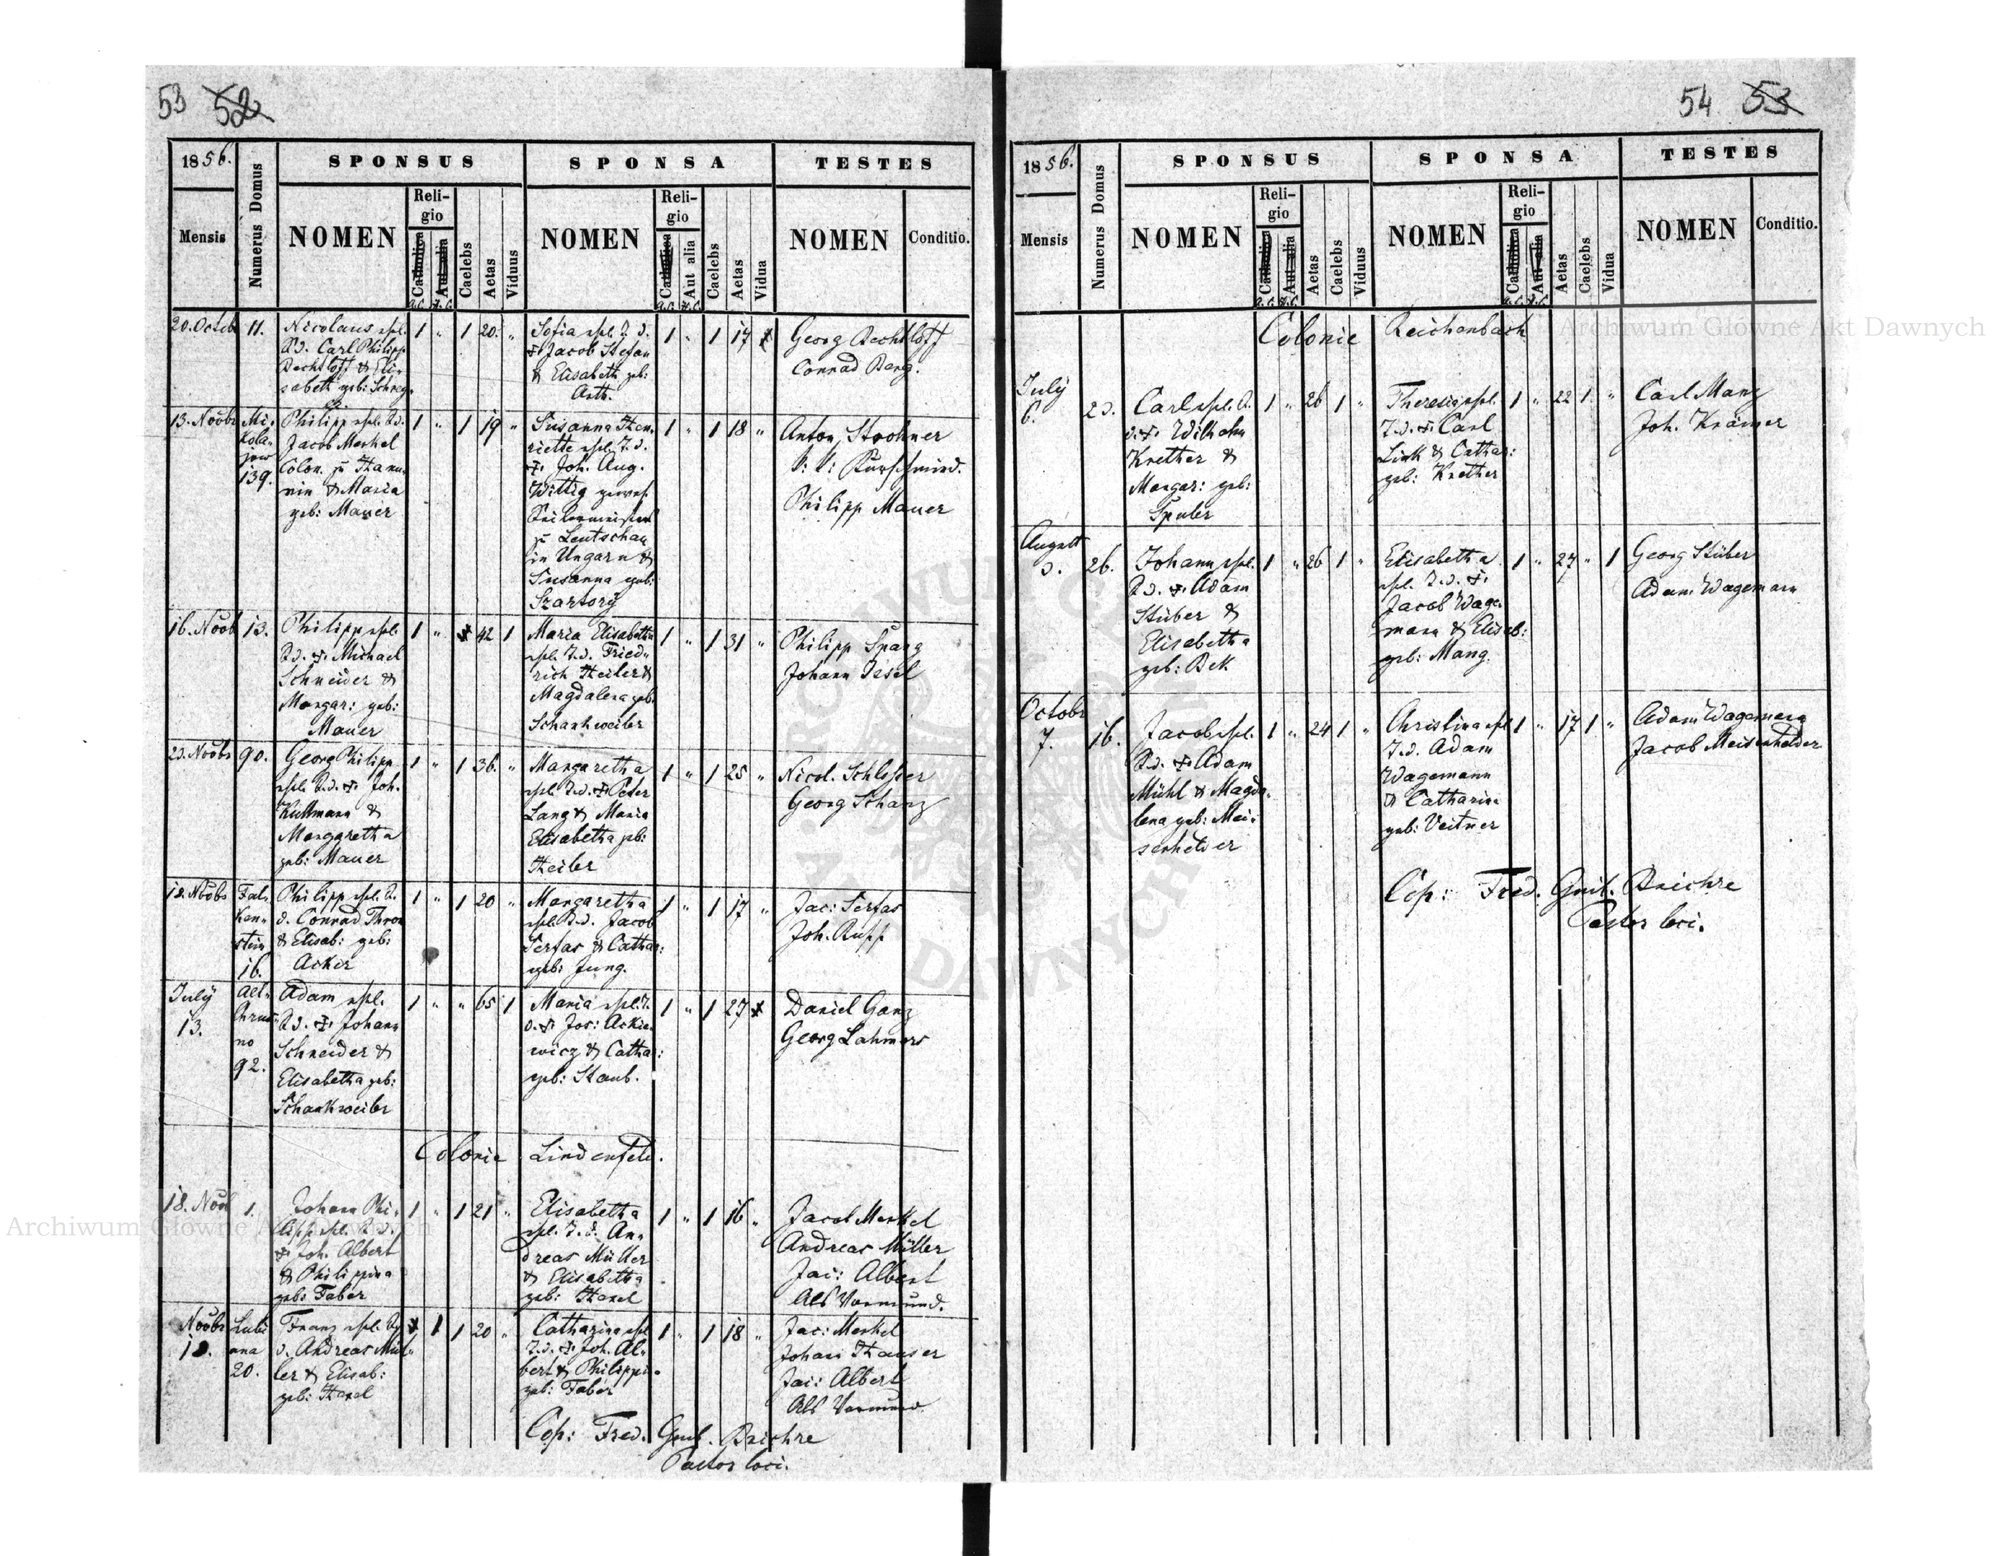 53 52
1856.
Numerus Domus
SPONSUS
SPONSA
TESTES
Mensis
NOMEN
Religio
Catholica
Aut alia
Caelebs
Aetas
Viduus
NOMEN
Religio
Catholica
Aut alia
Caelebs
Aetas
Vidua
NOMEN
Conditio.
A.C. H.C.
A.C. H.C.
20. Octob 11. Nicolaus ehl. 1 " 1 20. " Sofia ehl. T. d. 1 " 1 17 Georg Bechtloff
S.d. Carl Philipp
Bechtloff & Eli-
sabeth geb: Schreg.
Jacob Stefan
& Elisabeth geb:
Conrad Berg.
13. Noobr Mi-
kola-
jow
139.
Philipp ehl. S.d. 1 " 1 19 "
Jacob Merkel
Colon. zu
& Maria
geb: Mauer
Susanna Hen-
riette ehl. T. d.
Joh. Aug.
Wittig gewes.
Seilermeister
zu Leutschau
in Ungarn &
Susanna geb:
Szartory
1 " 1 18 "
Anton Strohner
Philipp Mauer
16. Noob 13. Philipp ehl.
S.d. Michael
Schneider &
Margar: geb:
Mauer
1 " 42 1
Maria Elisabetha
ehl. T.d. Fried-
rich Heiler &
Magdalena geb:
Schankweiler
1 " 1 31 "
Philipp Spang
Johann Issel
23. Noobr 90. Georg Philipp
ehl. S.d. Joh.
Kullmann &
Margaretha
geb: Mauer
1 " 1 36. "
Margaretha
ehl. T.d. Peter
Lang & Maria
Elisabetha geb:
Heiler
1 " 1 25 "
Nicol. Schlosser
Georg Schanz
18. Noobr Fal-
ken-
stein
16.
Philipp ehl. S.
d. Conrad Thron
& Elisab: geb:
Acker
1 " 1 20 "
Margaretha
ehl. T.d. Jacob
Serfas & Cathar:
geb: Jung.
1 " 1 17 "
Jac: Serfas
Joh. Rupp
July
13.
no
92.
Adam ehl.
S.d. Johann
Schneider &
Elisabetha geb:
Schankweiler
1 " " 65 1
Maria ehl. T.
d. Jos: Ackie-
wicz & Catha:
geb: Staub.
1 " 1 27
Daniel Ganz
Georg Lahmers
Colonie Lindenfeld.
18. Nov 1. Johann Phi-
lipp ehl. S.d.
Joh. Albert
& Philippina
geb: Faber
1 " 1 21 "
Elisabetha
ehl. T.d. An-
dreas Müller
& Elisabetha
geb: Haxel
1 " 1 16 "
Jacob Merkel
Andreas Müller
Jac: Albert
Als Vormund.
Noobr
18.
Lubi
ana
20.
Franz ehl. S.
d. Andreas Mül-
ler & Elisab:
geb: Haxel
1 1 20 "
Catharina ehl
T.d. Joh. Al-
bert & Philippi-
geb: Faber
1 " 1 18 "
Jac: Merkel
Johann Hauser
Jac: Albert
Als Vormund.
Cop: Fred. Guil. Reichre
Pastor loci.
54 53
1856.
Numerus Domus
SPONSUS
SPONSA
TESTES
Mensis
NOMEN
Religio
Catholica
Aut alia
Aetas
Caelebs
Viduus
NOMEN
Religio
Catholica
Aut alia
Aetas
Caelebs
Vidua
NOMEN
Conditio.
A.C. H.C.
A.C. H.C.
Colonie Reichenbach
July
6.
23. Carl ehl. S.
d. Wilhelm
Krether &
Margar: geb:
Spuler
1 " 26 1 "
Theresia ehl.
T.d. Carl
Link & Cathar:
geb: Krether
1 " 22 1 "
Carl Manz
Joh. Krämer
August
3.
26. Johann ehl.
S.d. Adam
Stüber &
Elisabetha
geb: Bek
1 " 26 1 "
Elisabetha
ehl. T.d.
Jacob Wage-
mann & Elisab:
geb: Mang.
1 " 27 " 1
Georg Stüber
Adam Wagemann
Octobr
7.
16. Jacob ehl.
S.d. Adam
Mühl & Magda-
lena geb: Mei-
senhelder
1 " 24 1 "
Christina ehl
T.d. Adam
Wagemann
& Catharina
geb: Veitner
1 " 17 1 "
Adam Wagemann
Jacob Meisenhelder
Cop: Fred. Guil. Reichre
Pastor loci.
Archiwum Główne Akt Dawnych
Archiwum Główne Akt Dawnych